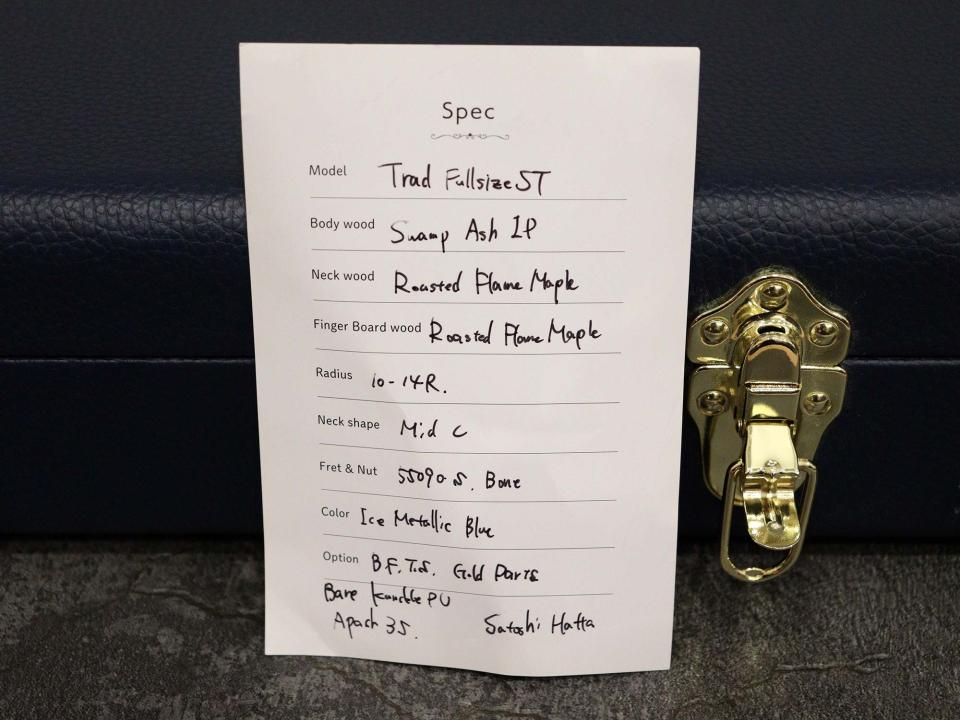 Spec
Model Trad Fullsize ST
Body wood Swamp Ash 1P
Neck wood Roasted Flame Maple
Finger Board wood Roasted Flame Maple
Radius 10-14R.
Neck shape Mid C
Fret & Nut 55090-S. Bone
Color Ice Metallic Blue
Option B.F.T.S. Gold Parts
Bare Knuckle PU
Apach 3S. Satoshi Hatta